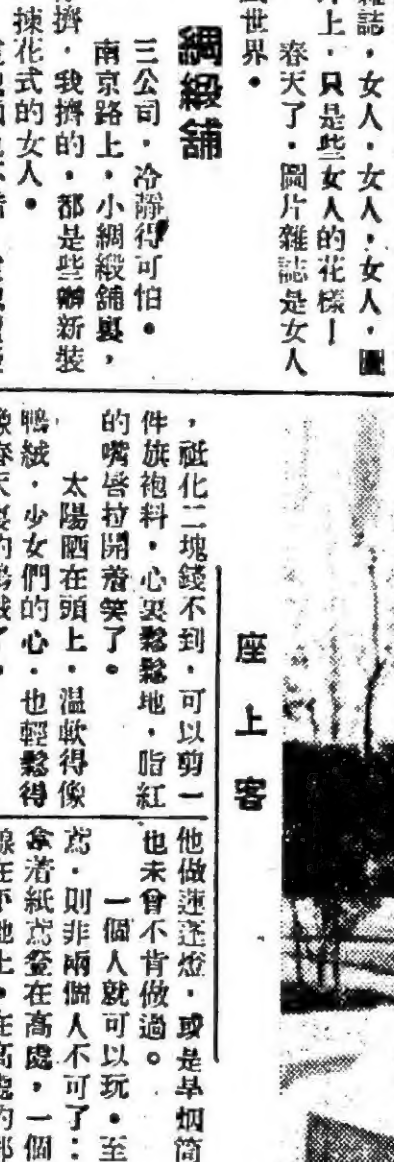 誌，女人，女人，女人，圖
上，只是些女人的花樣！
春天了，圖片雜誌是女人
世界。
綢緞舖
三公司，冷靜得可怕。
南京路上，小綢緞舖裏，
擠，我擠的，都是些辦新裝
揀花式的女人。
座上客
，祗化二塊錢不到，可以剪一
件旗袍料，心裏鬆鬆地，脂紅
的嘴唇拉開着笑了。
太陽晒在頭上，温軟得像
鴨絨，少女們的心，也輕鬆得
他做蓮蓬燈，或是旱烟筒
也未曾不肯做過。
一個人就可以玩。至
鳶，則非兩個人不可了：
拿着紙鳶登在高處，一個